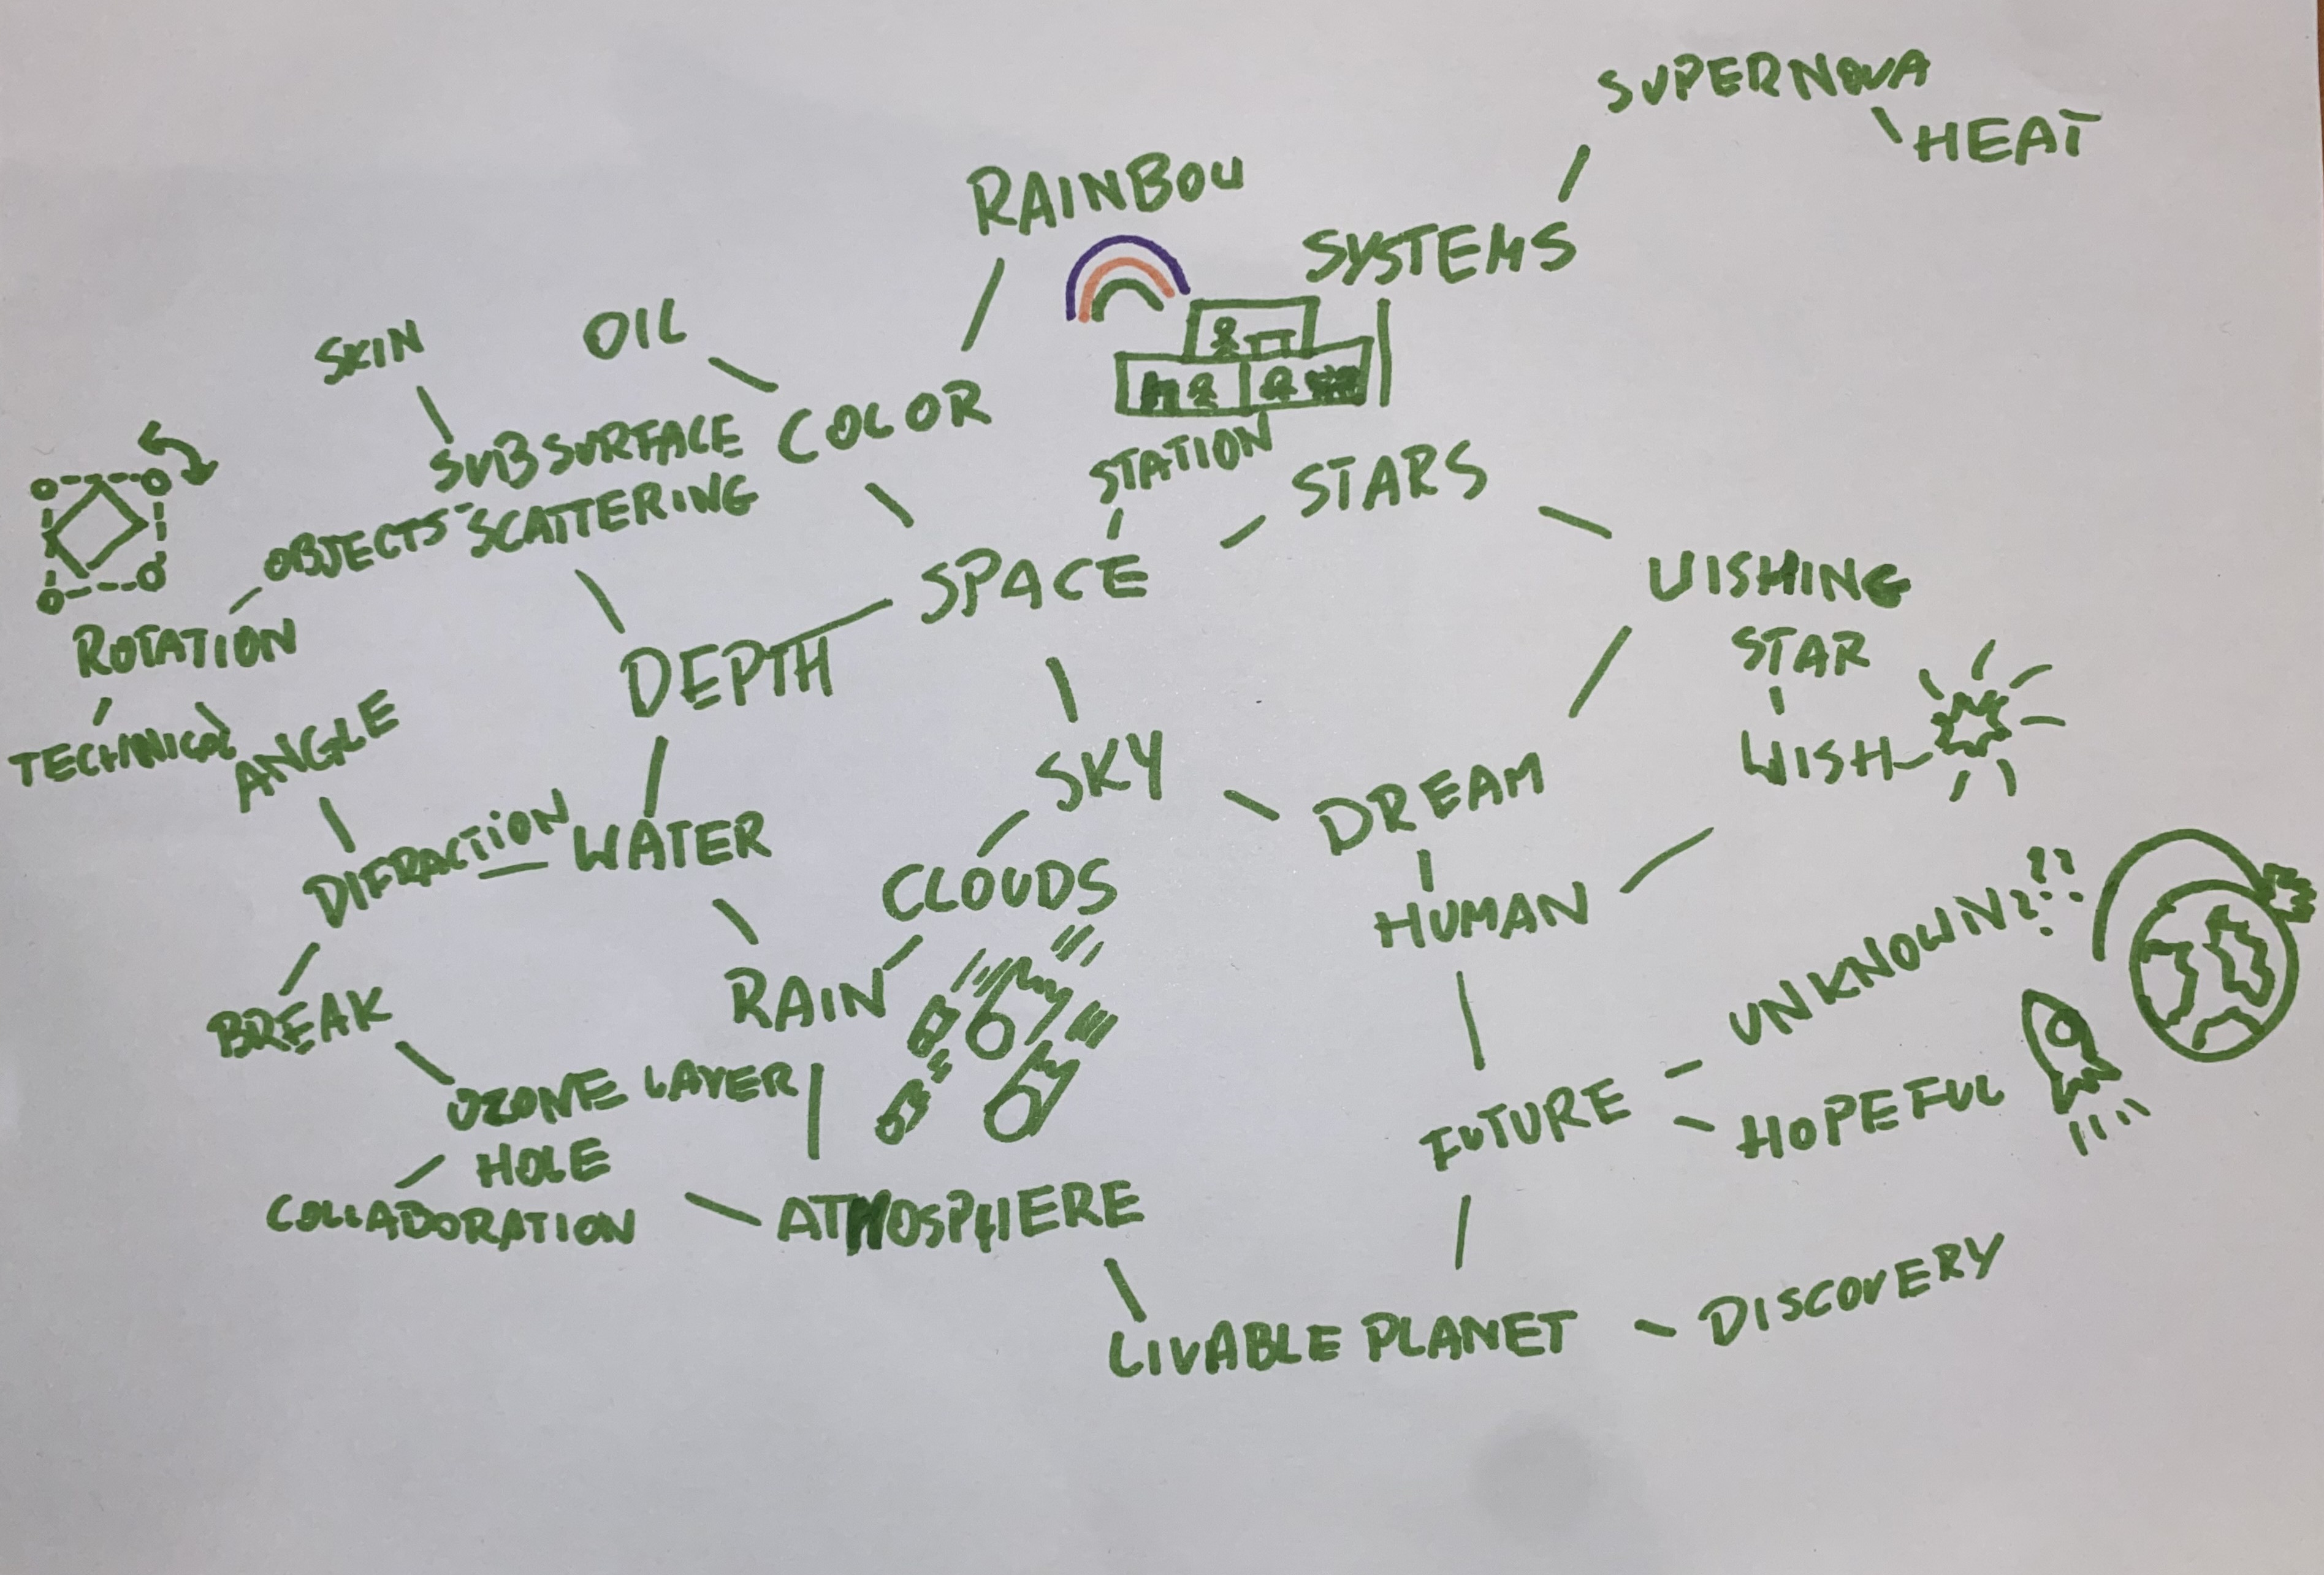 SUPERNOVA
HEAT
RAINBOW
SYSTEMS
OIL
SKIN
COLOR
SUBSURFACE
SCATTERING
STATION
STARS
OBJECTS
SPACE
WISHING
STAR
ROTATION
DEPTH
WISH
TECHNICAL
ANGLE
SKY
DREAM
DIFRACTION
WATER
CLOUDS
HUMAN
UNKNOWN???
BREAK
RAIN
OZONE LAYER
HOLE
FUTURE
HOPEFUL
COLLABORATION
ATMOSPHERE
LIVABLE PLANET
DISCOVERY